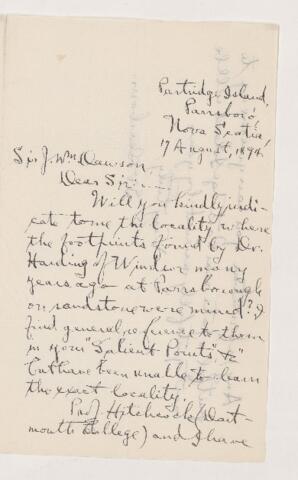 Partridge Island,
Parrsboro',
Nova Scotia
17 August, 1894.
Sir J. Wm Dawson,
Dear Sir:—
Will you kindly indi-
cate to me the locality where
the footprints found by Dr.
Harding of Windsor many
years ago at Parrsborough
on sandstone were mined? I
find general reference to them
in your "Salient Points", &
but have been unable to learn
the exact locality.
Prof. Hitchcock (Dart-
mouth College) and I have